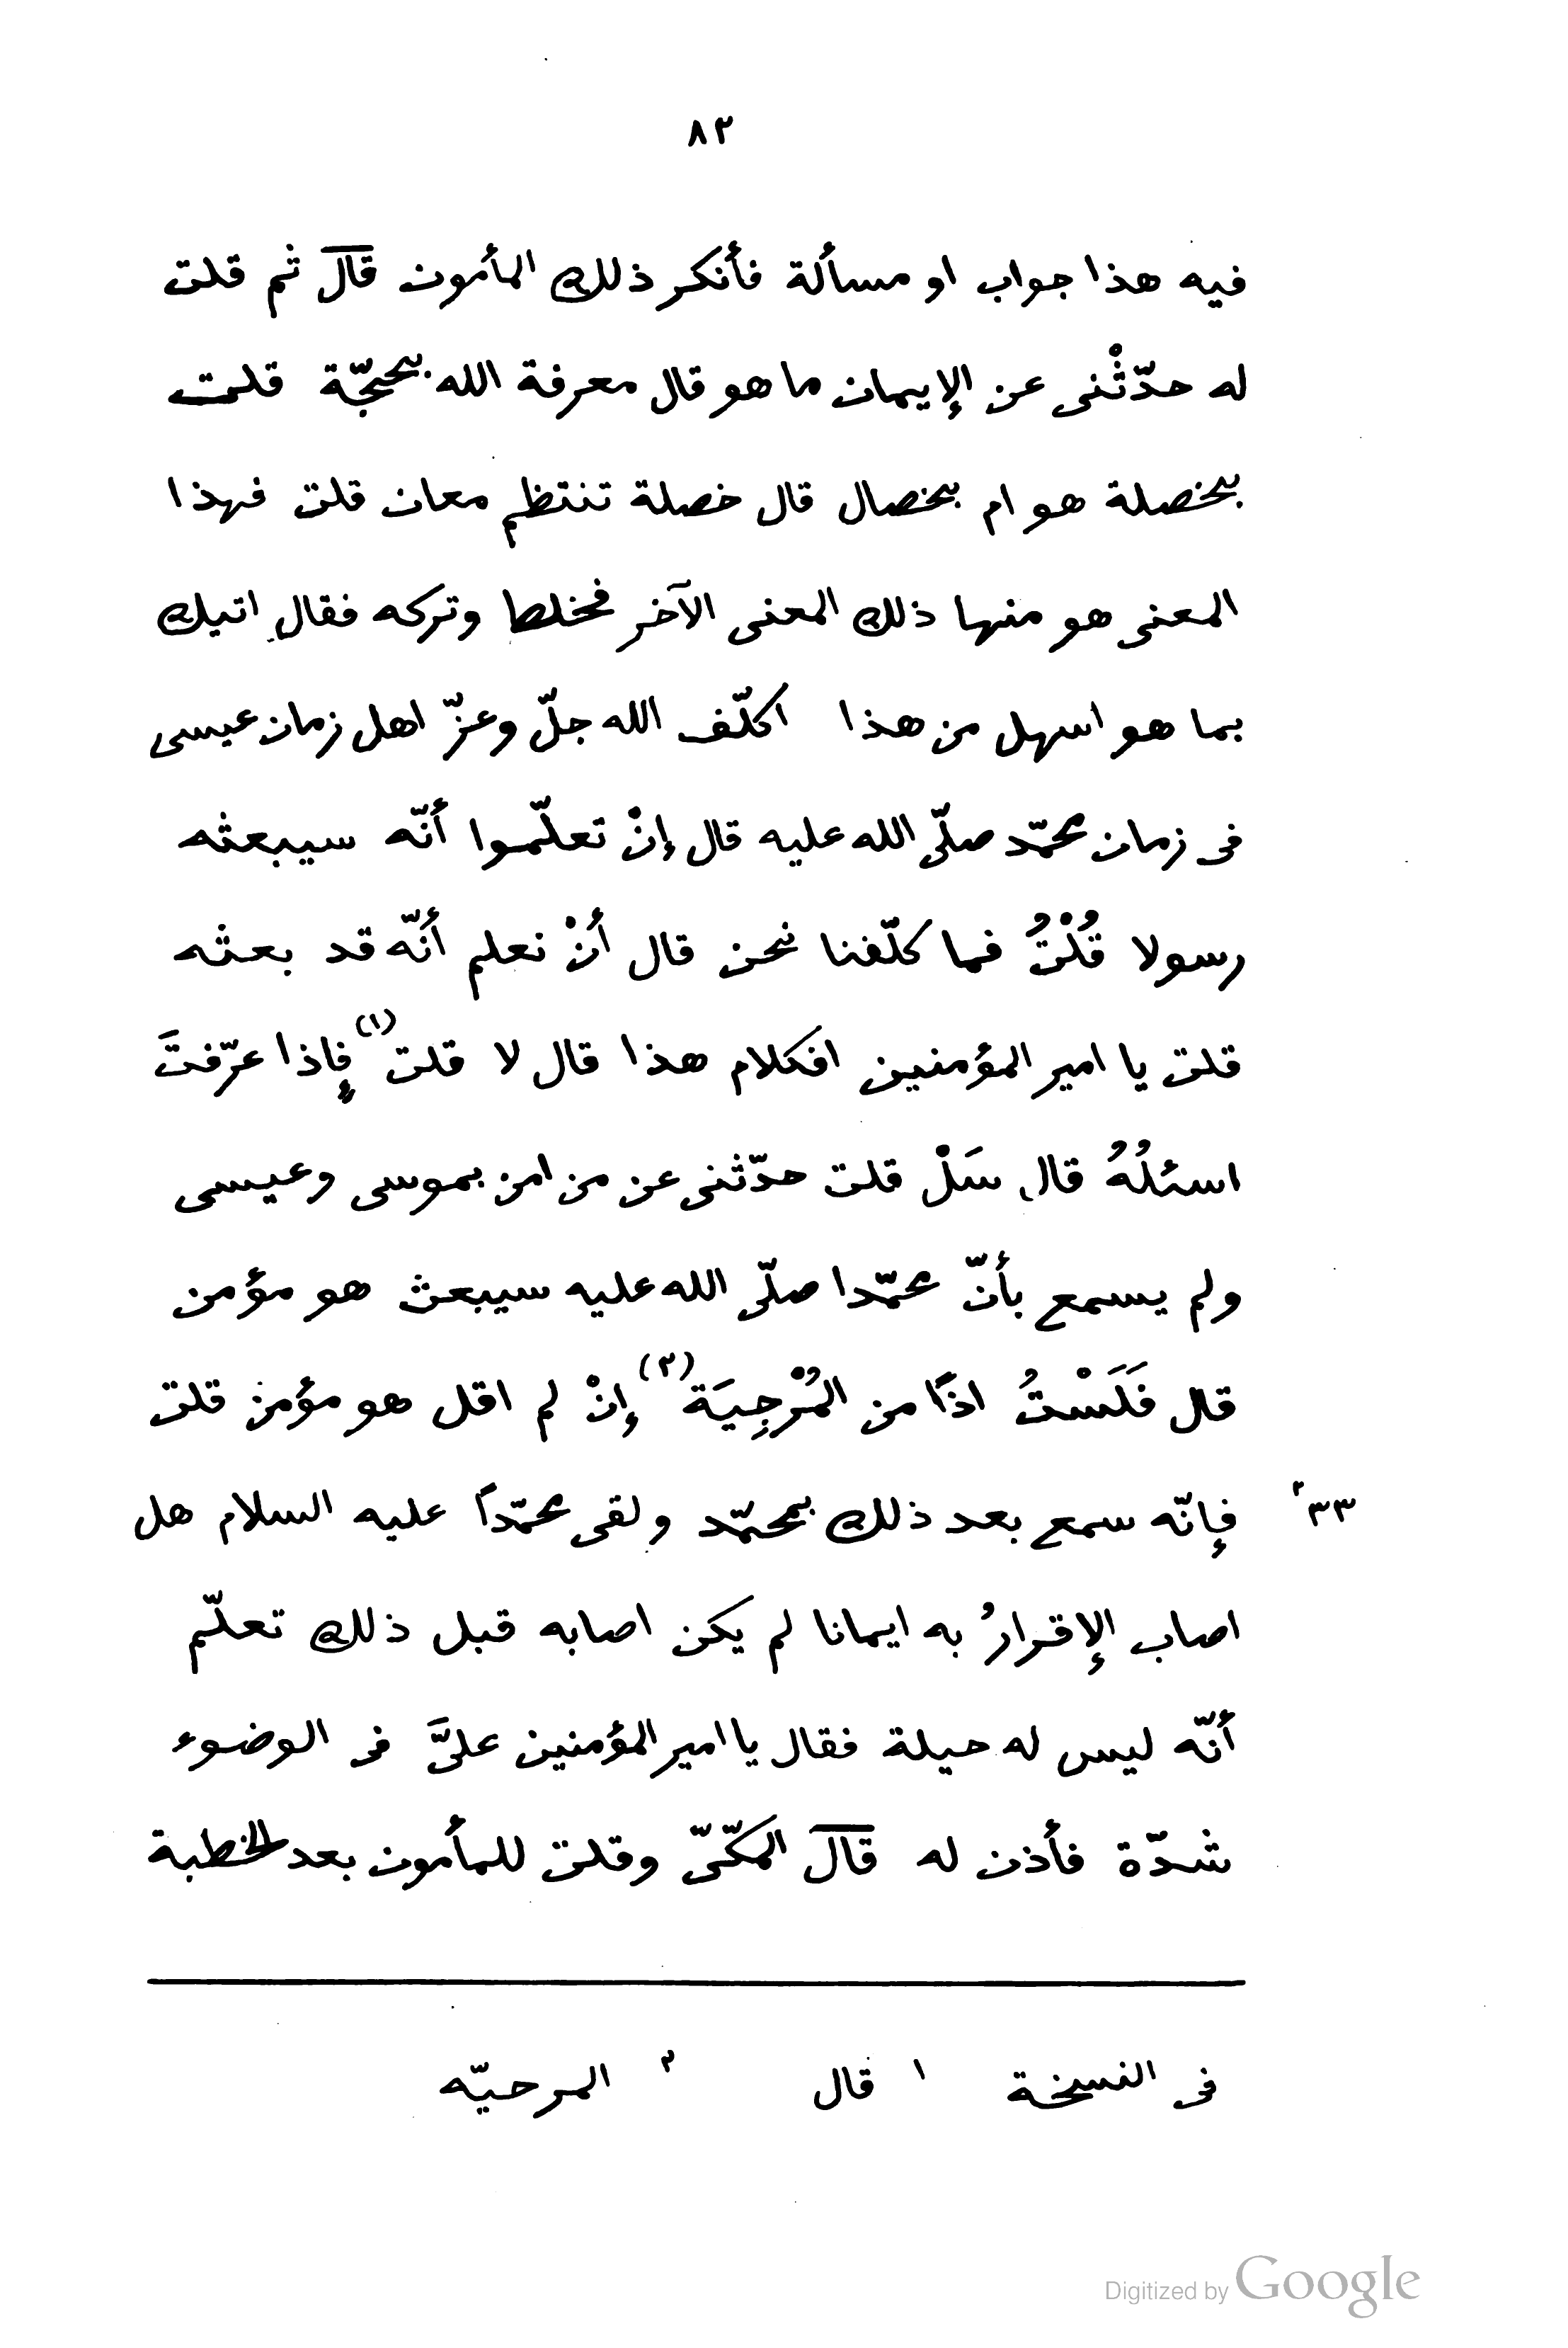 ٨٢
فيه هذا جواب او مسألة فأنكر ذلك المأمون قال ثم قلت
له حدّثْنى عن الإيمان ما هو قال معرفة الله بحجّة قلت
بخصلة هو ام بخصال قال خصلة تنتظم معان قلت فهذا
المعنى هو منها ذلك المعنى الآخر فخلط وتركه فقال اتيك
بما هو اسهل من هذا اكلّف الله جلّ وعزّ اهل زمان عيسى
فى زمان محمّد صلّى الله عليه قال إنْ تعلّموا أنّه سيبعثه
رسولا قُلْتُ فما كلّفنا نحن قال أنْ نعلم أنّه قد بعثه
قلت يا امير المؤمنين افكلام هذا قال لا قلت (١) فإذا عرّفتَ
اسئلُهُ قال سَلْ قلت حدّثنى عن من امن بموسى وعيسى
ولم يسمع بأنّ محمّدا صلّى الله عليه سيبعث هو مؤمن
قال فَلَسْتُ اذًا من المُرْجِيَة (٢) إنْ لم اقل هو مؤمن قلت
٣٣ فإنّه سمع بعد ذلك بمحمّد ولقى محمّدًا عليه السلام هل
اصاب الإقرارُ به ايمانا لم يكن اصابه قبل ذلك تعلّم
أنّه ليس له حيلة فقال يا امير المؤمنين علىَّ فى الوضوء
شدّة فأذن له قال المكّىّ وقلت للمأمون بعد الخطبة
فى النسخة ١ قال ٢ المرحيّه
Digitized by Google